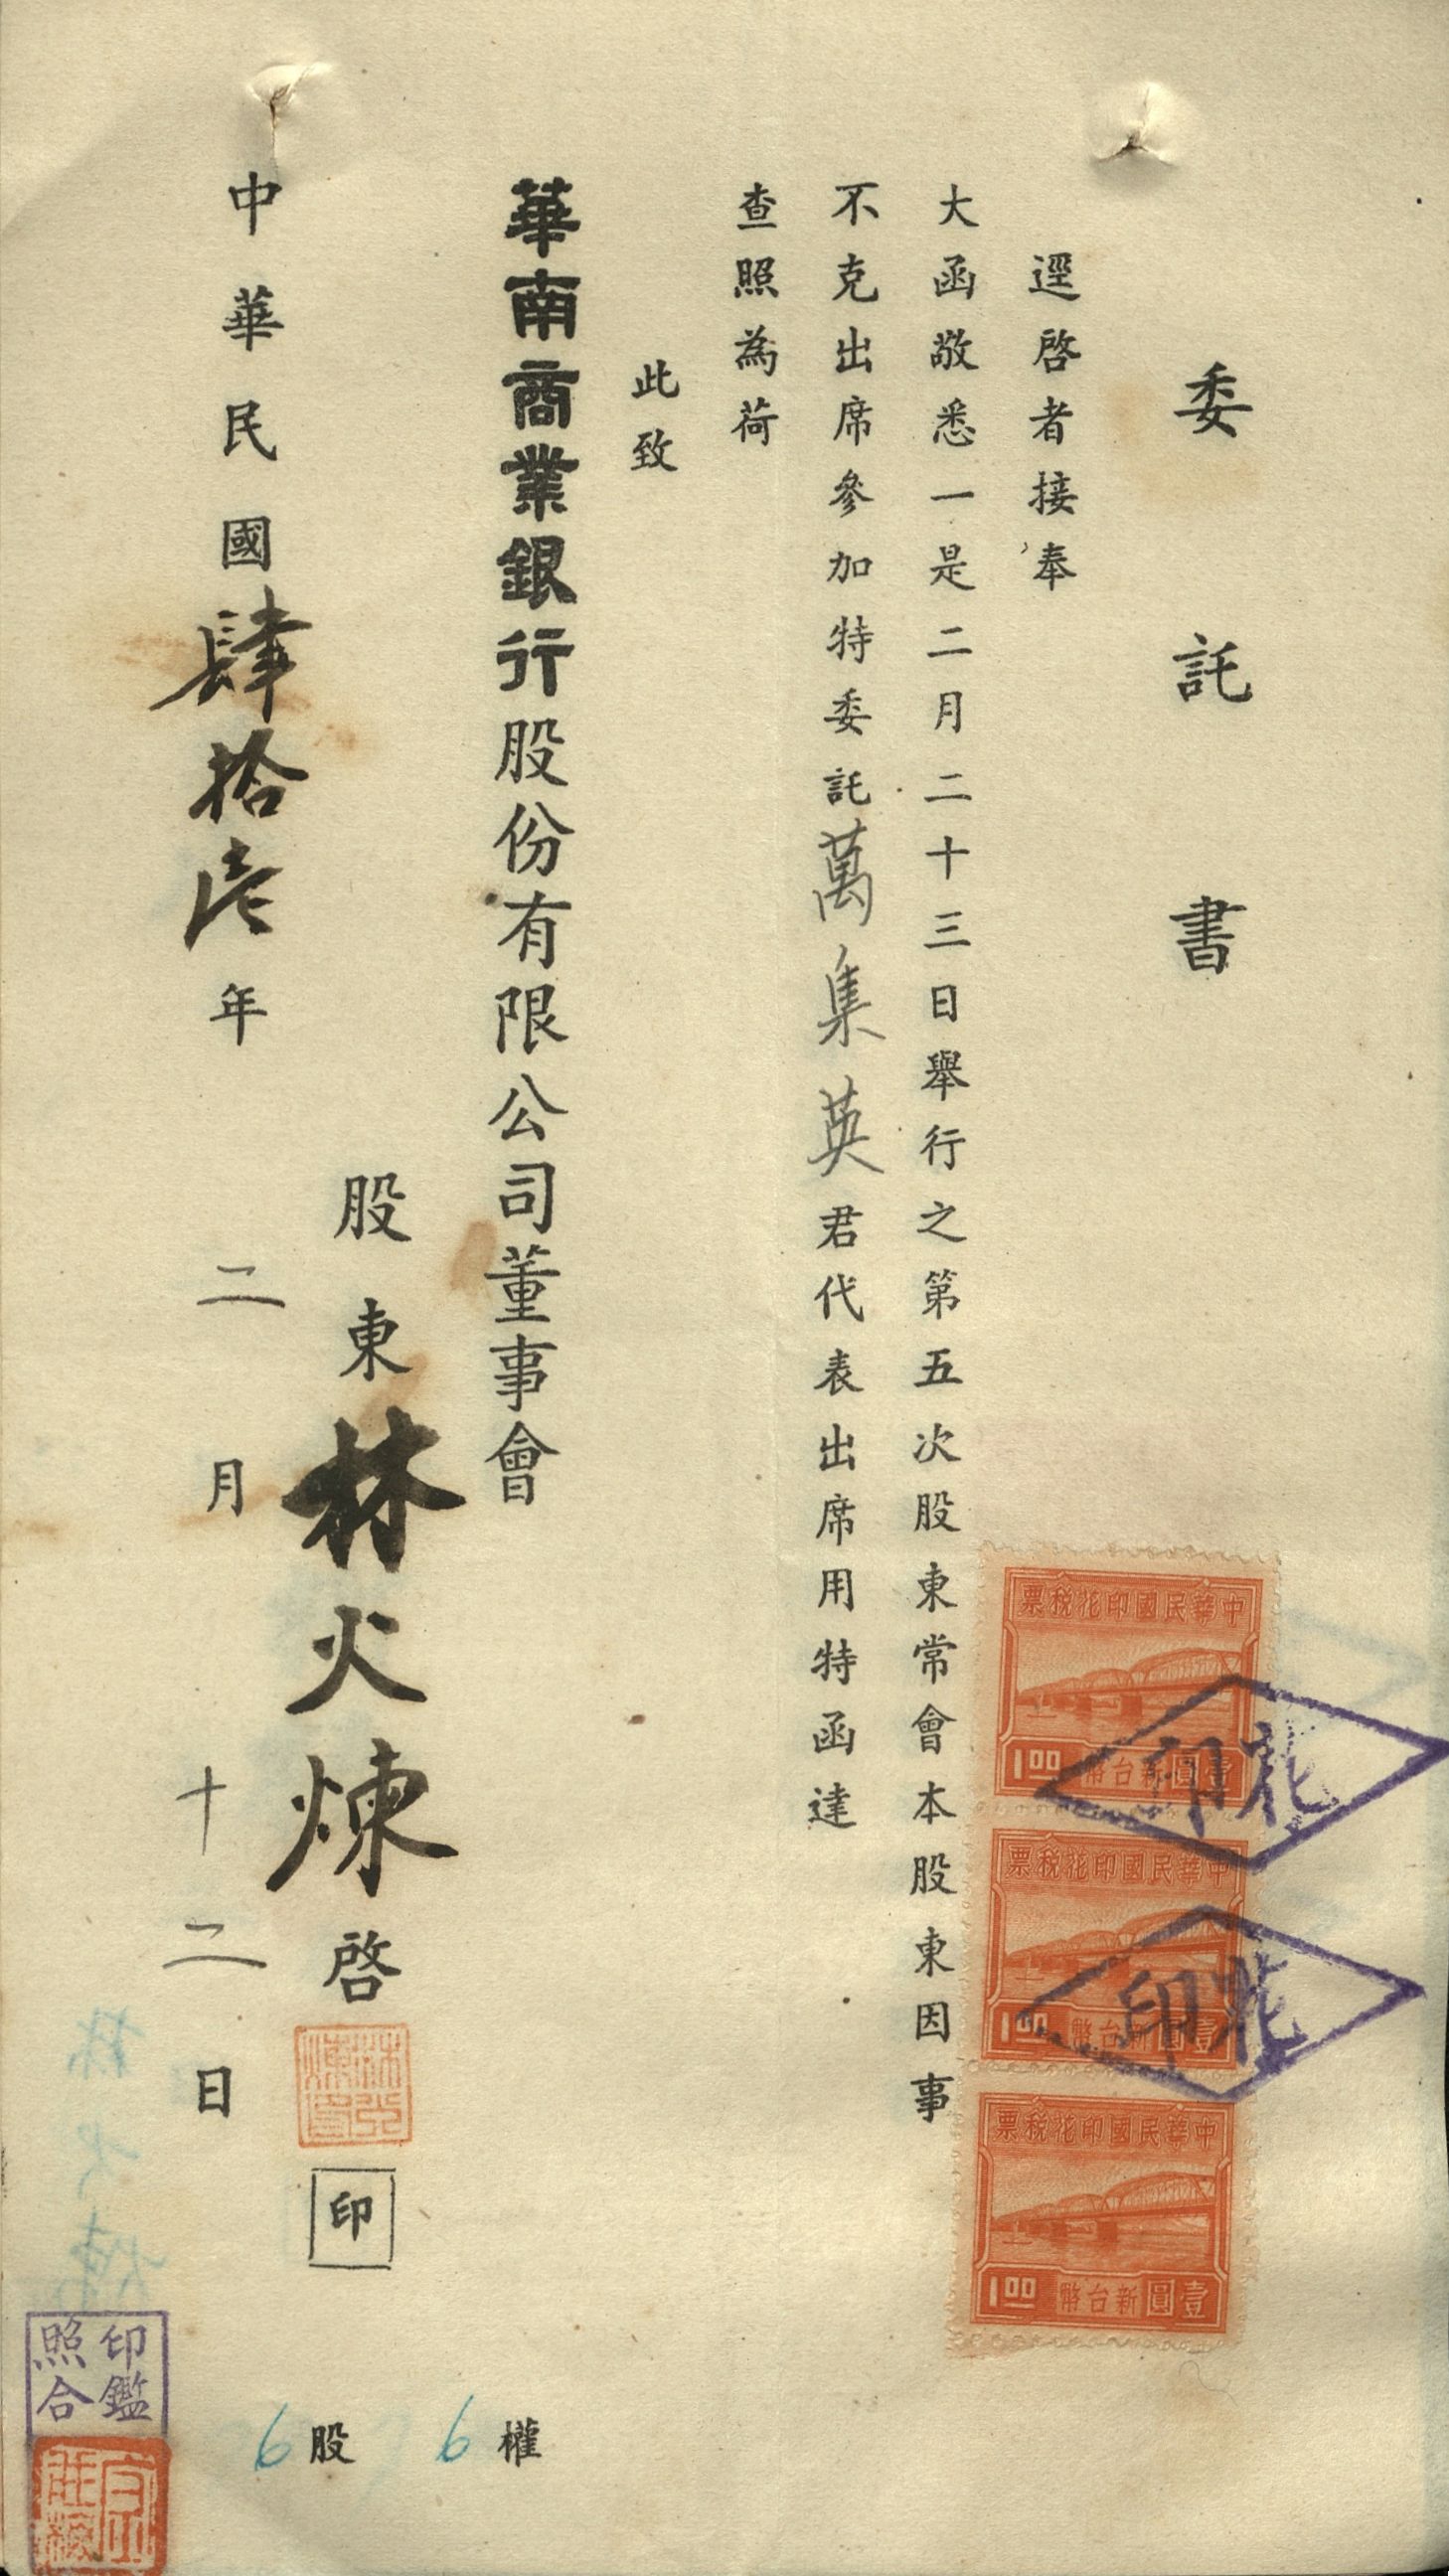 委託書
逕啓者接奉
大函敬悉一是二月二十三日舉行之第五次股東常會本股東因事
不克出席參加特委託萬集英君代表出席用特函達
查照為荷
此致
華南商業銀行股份有限公司董事會
股東林火煉啓
印
中華民國肆拾壹年二月十二日
6權
6股
中華民國印花稅票
1.00
壹圓新台幣
花印
中華民國印花稅票
1.00
壹圓新台幣
花印
中華民國印花稅票
1.00
壹圓新台幣
印鑑
照合